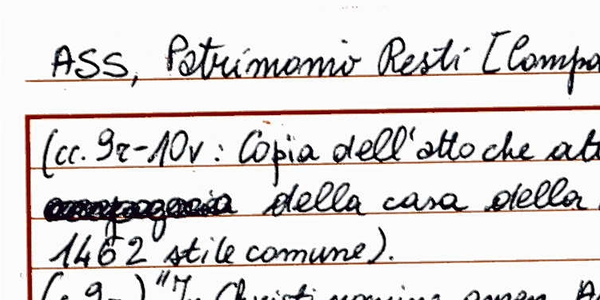 ASS, Patrimonio Resti [Compa
(cc. 9r-10v: Copia dell'atto che att
della casa della
1462 stile comune).
(c. 9r) "In Christi nomine amen. A